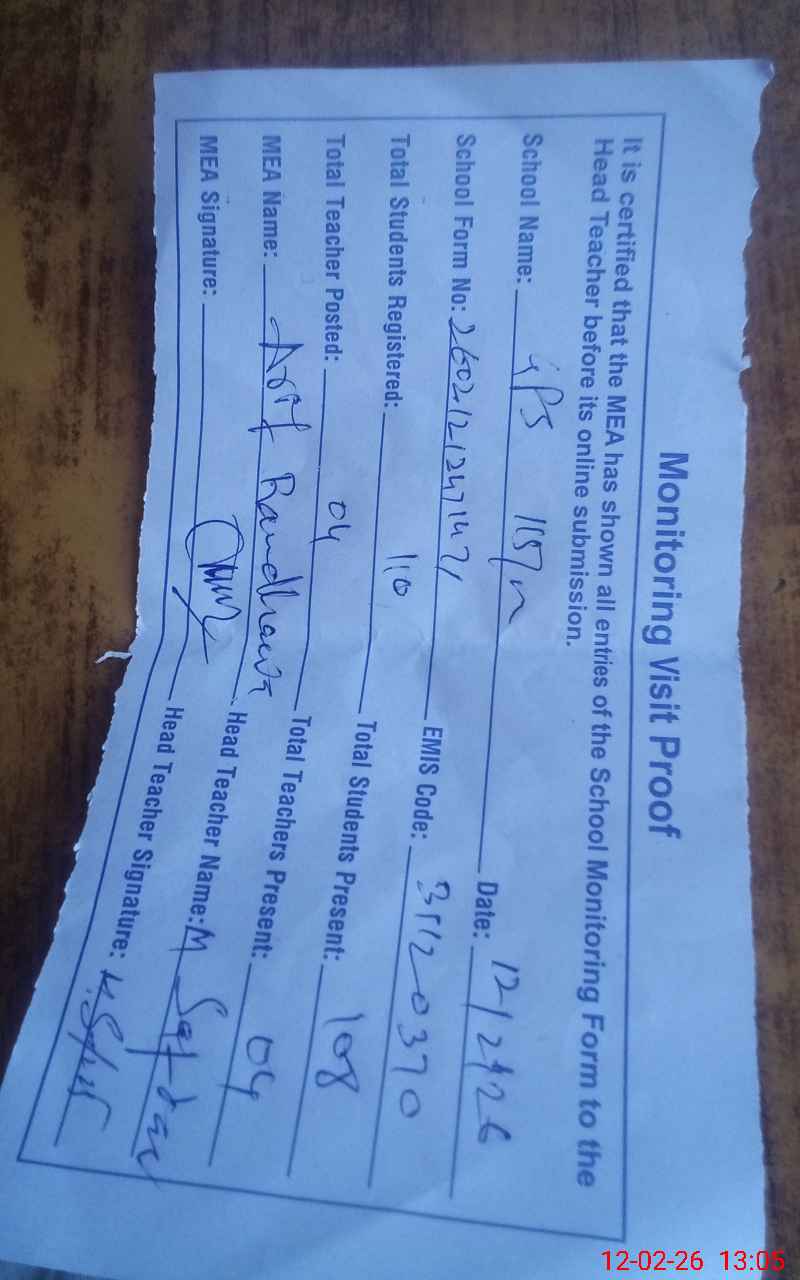 Monitoring Visit Proof
It is certified that the MEA has shown all entries of the School Monitoring Form to the
Head Teacher before its online submission.
School Name: GPS 115/n Date: 12/2/26
School Form No: EMIS Code: 31120370
Total Students Registered: 110 Total Students Present: 108
Total Teacher Posted: 04 Total Teachers Present: 04
MEA Name: Arif Randhawa Head Teacher Name: M Safdar
MEA Signature: Head Teacher Signature:
12-02-26 13:05